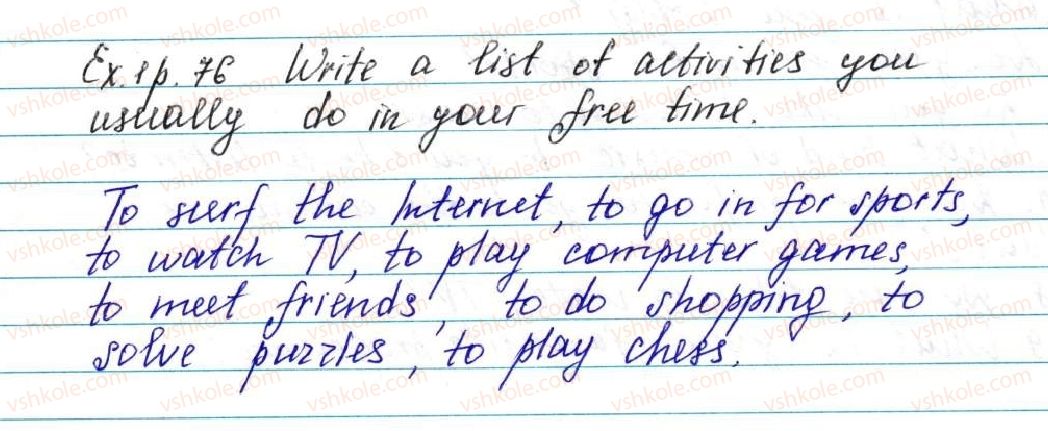 Ex. 1 p. 76 Write a list of activities you
usually do in your free time.
To surf the Internet, to go in for sports,
to watch TV, to play computer games,
to meet friends, to do shopping, to
solve puzzles, to play chess.